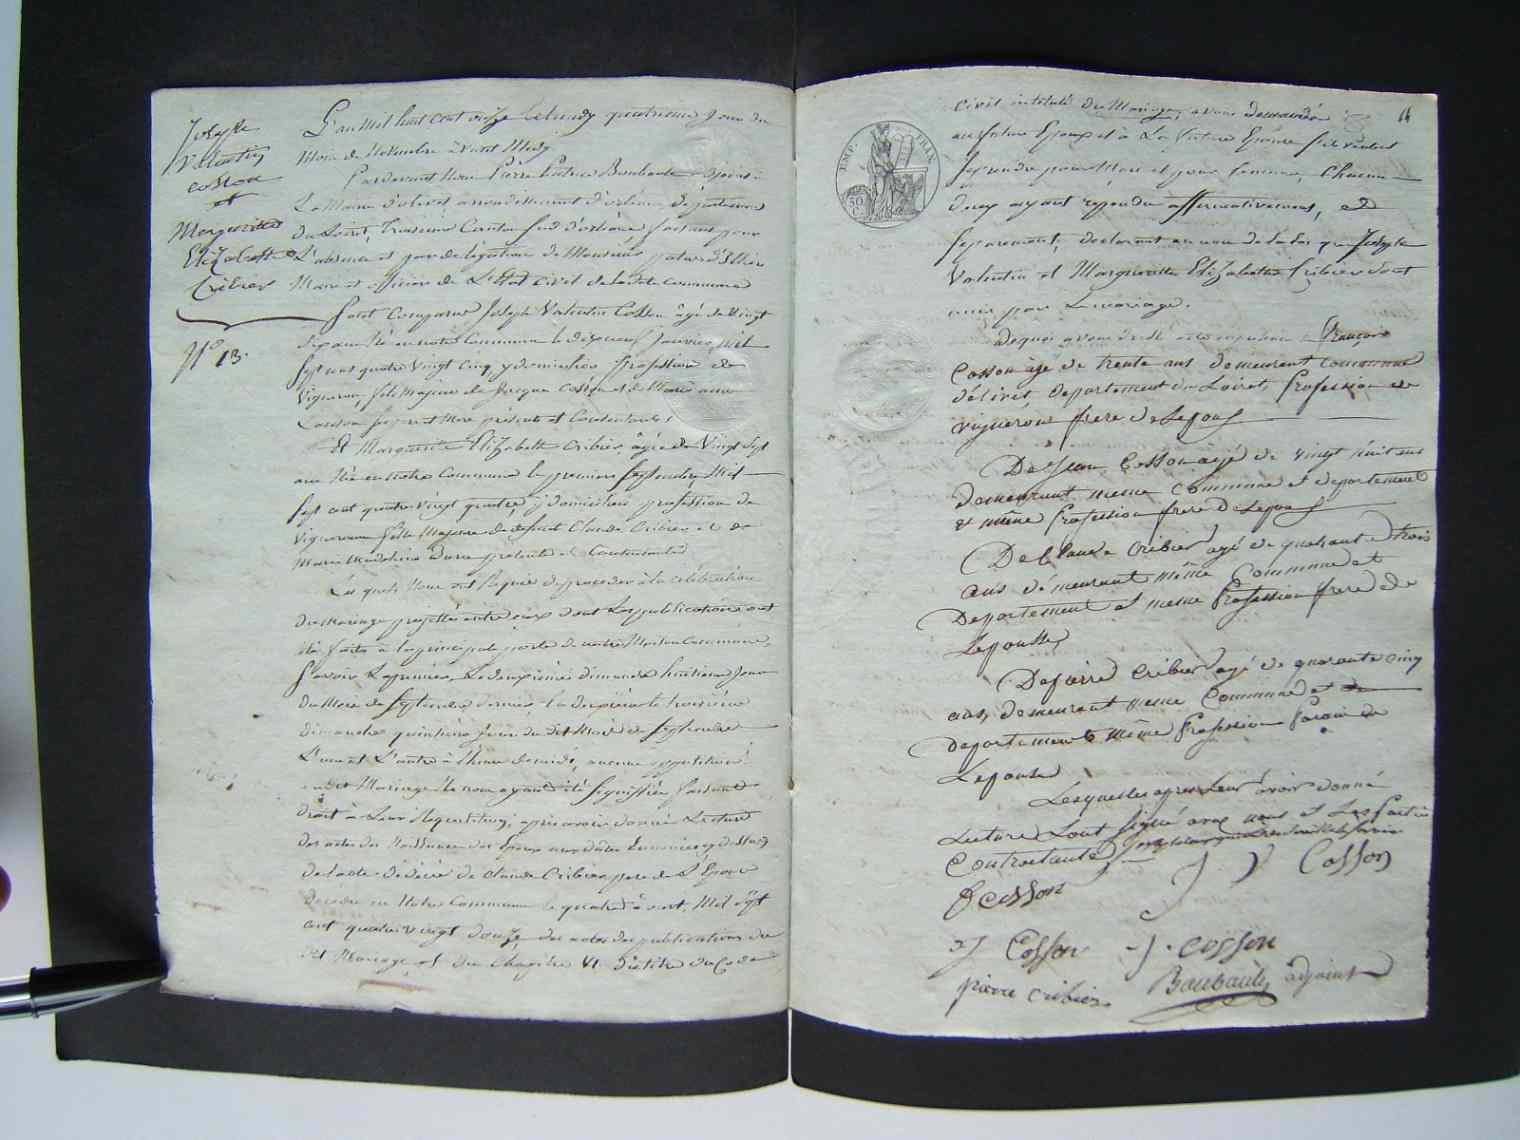 Joseph
Valentin
Cosson
et
Margueritte
Elizabette
Cribier
N.° 13.
L'an Mil huit cent onze Le lundy quatrieme Jour du
Mois de Novembre à
Pardevant Nous Pierre Patrice Boubault adjoint
La Mairie d'olivet arrondissement d'orleans, département
du Loiret, Canton Sud d'orleans faisant pour
L'absence et par délégation de Monsieur
Maire et officier de L'Etat Civil de ladite Commune
Sont Comparus Joseph Valentin Cosson âgé de Vingt
Six ans Né en notre Commune le dixneuf Janvier Mil
Sept cent quatre Vingt Cinq, y domicilié Profession de
Vigneron, fils Majeur de Jacque Cosson et de Marie anne
Ses pere et Mere présents et Consentants
Et Marguerite Elizabette Cribier, âgée de Vingt Sept
ans Née en notre Commune le premier Septembre Mil
Sept cent quatre Vingt quatre, y domiciliée profession de
Vigneronne fille Majeure de defunt Claude Cribier et de
Marie Madeleine présente et Consentante
Les quels Nous ont Requis de proceder à la célébration
du Mariage projetté entre eux dont Les publications ont
été faites à la principale porte de notre Maison Commune,
Savoir La premiere, Le dimanche huitieme Jour
du Mois de Septembre dernier, la deuxieme le troisieme
dimanche quinzieme Jour du dit Mois de Septembre
L'une et L'autre à l'heure de midi, aucune opposition
au dit Mariage Ne nous ayant été Signifiée faisant
droit à Leur Requisition, après avoir donné Lecture
des actes de Naissance des Epoux aux dates
de l'acte de décès de Claude Cribier pere de L'Epouse
décédé en Notre Commune le quatre Mil Sept
cent quatre Vingt douze des actes des publications du
dit Mariage et du Chapitre VI du titre du Code
14
EMP. FRAN.
50 C.
Civil intitulé du Mariage, avons demandé
au futur Epoux et à La future Epouse S'ils veulent
Se prendre pour Mari et pour femme, Chacun
d'eux ayant répondu affirmativement, et
Séparement, declarons au nom de la Loi que Joseph
Valentin et Margueritte Elizabette Cribier Sont
unis par Le mariage.
De quoi avons dressé acte en présence de François
Cosson âgé de trente ans demeurant Commune
d'olivet, departement du Loiret, Profession de
vigneron frere de Lepoux
De Jean Cosson agé de vingt huit ans
demeurant meme Commune et departement
et même Profession frere De Lepoux
De Claude Cribier agé de quarante trois
ans démeurant même Commune et
Departement et meme Profession frere de
Lepouse
De pierre Cribier agé de quarante cinq
ans, demeurant meme Commune et de
departement même Profession Parain de
Lepouse
Lesquelles apres Leur avoir donné
Lecture L'ont Signé avec nous et Les Parties
Contractantes
Cosson
Cosson
J Cosson J. cosson
pierre cribier Boubault adjoint